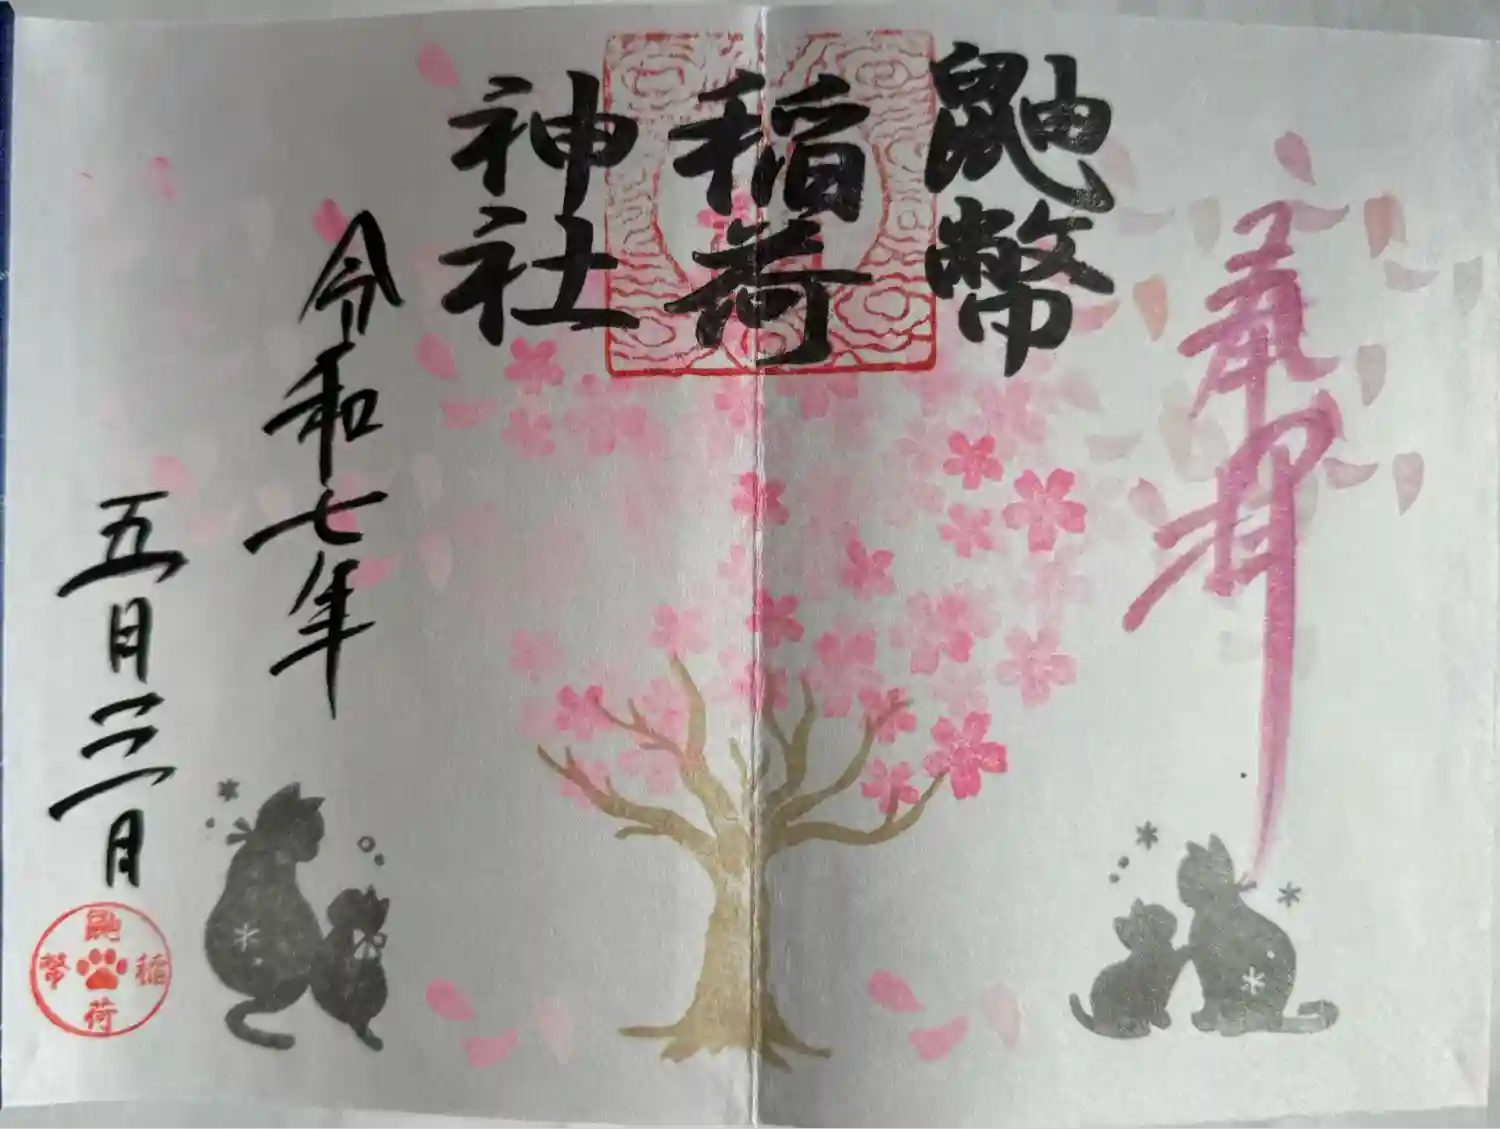 奉拝
鼬幣
稲荷
神社
令和七年
五月二二日
鼬幣稲荷